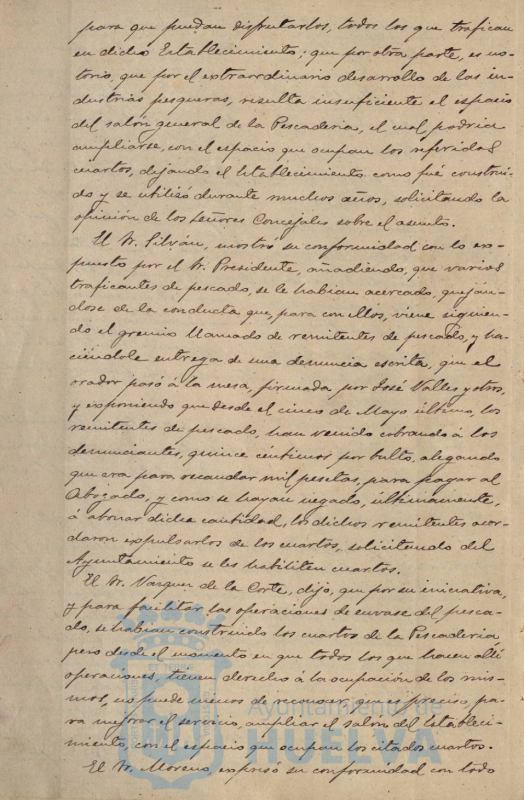 para que puedan disfrutarlos, todos los que trafican
en dicho Establecimiento; que por otra parte, es no-
torio, que por el extraordinario desarrollo de las in-
dustrias pesqueras, resulta insuficiente el espacio
del salón general de la Pescaderia, el cual podria
ampliarse, con el espacio que ocupan los referidos
cuartos, dejando el Establecimiento como fué construi-
do y se utilizó durante muchos años, solicitando la
opinión de los Señores Concejales sobre el asunto.
El Sr. Silván, mostró su conformidad con lo ex-
puesto por el Sr. Presidente, añadiendo, que varios
traficantes de pescado, se le habian acercado, queján-
dose de la conducta que, para con ellos, viene siguien-
do el gremio llamado de remitentes de pescado, y ha-
ciéndole entrega de una denuncia escrita, que el
orador pasó á la mesa, firmada por José Valles y otros,
y exponiendo que desde el cinco de Mayo último, los
remitentes de pescado, han venido cobrando á los
denunciantes, quince céntimos por bulto, alegando
que era para recaudar mil pesetas, para pagar al
Abogado, y como se hayan negado, últimamente,
á abonar dicha cantidad, los dichos remitentes acor-
daron expulsarlos de los cuartos, solicitando del
Ayuntamiento se les habiliten cuartos.
El Sr. Vazquez de la Corte, dijo, que por su iniciativa,
y para facilitar las operaciones de envase del pesca-
do, se habian construido los cuartos de la Pescaderia
pero desde el momento en que todos los que hacen allí
operaciones, tienen derecho á la ocupación de los mis-
mos, no puede menos de reconocer que es preciso, pa-
ra mejorar el servicio, ampliar el salón del Estableci-
miento, con el espacio que ocupan los citados cuartos.
El Sr. Moreno, expresó su conformidad con todo
Ayuntamiento de
HUELVA